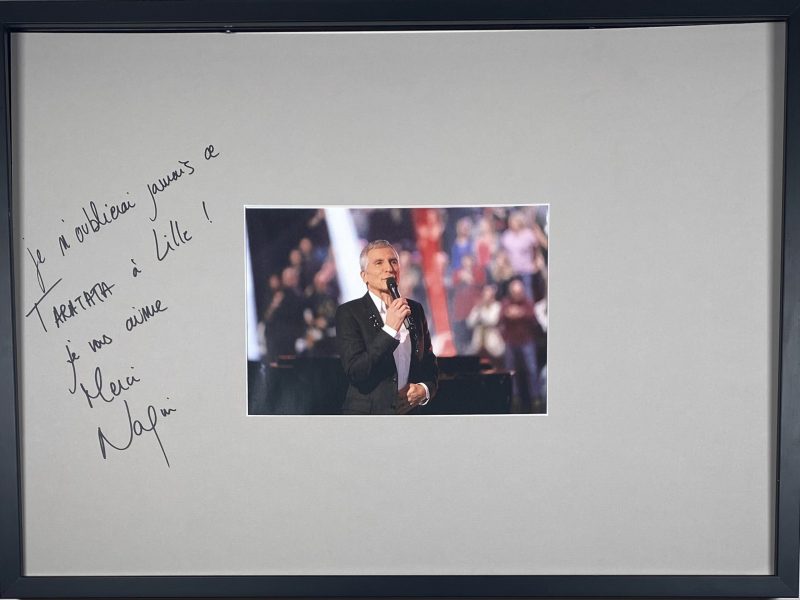 je n'oublierai jamais ce
TARATATA à Lille !
je vous aime
Merci
Nagui